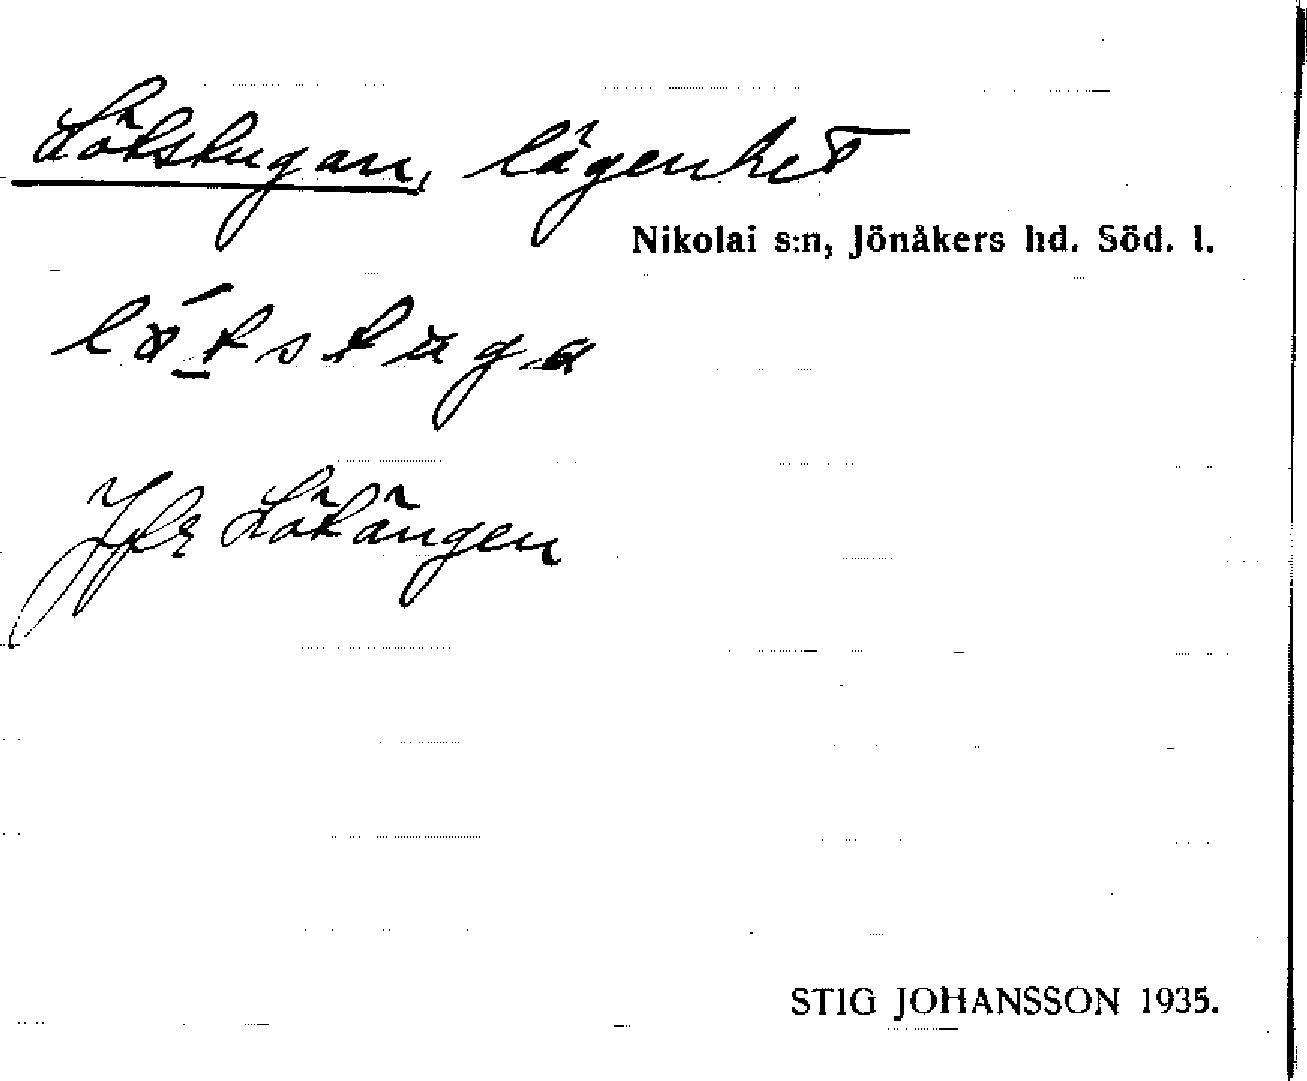 Lökskugan, lägenhet
Nikolai s:n, Jönåkers hd. Söd. l.
Jfr Lökängen
STIG JOHANSSON 1935.